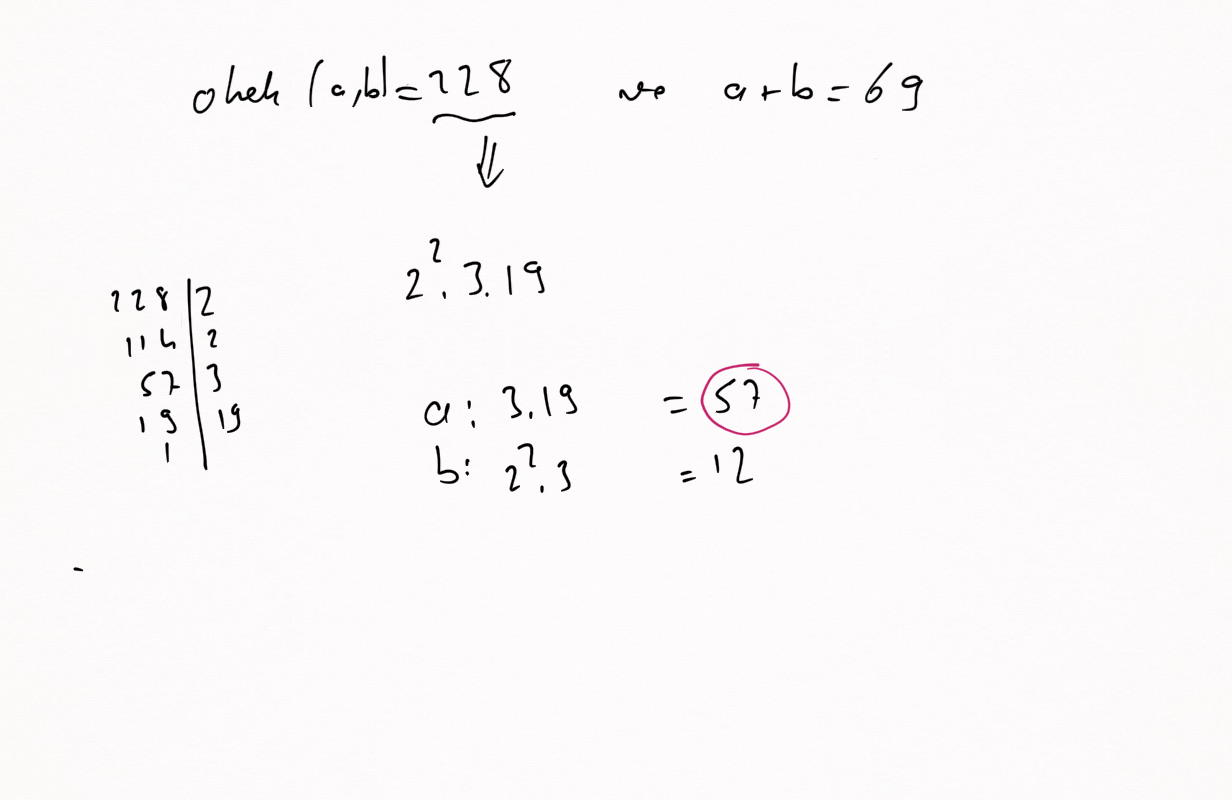 okek (a,b)=228 ve a+b=69
2².3.19
228|2
114|2
57|3
19|19
1|
a: 3.19 = 57
b: 2².3 = 12